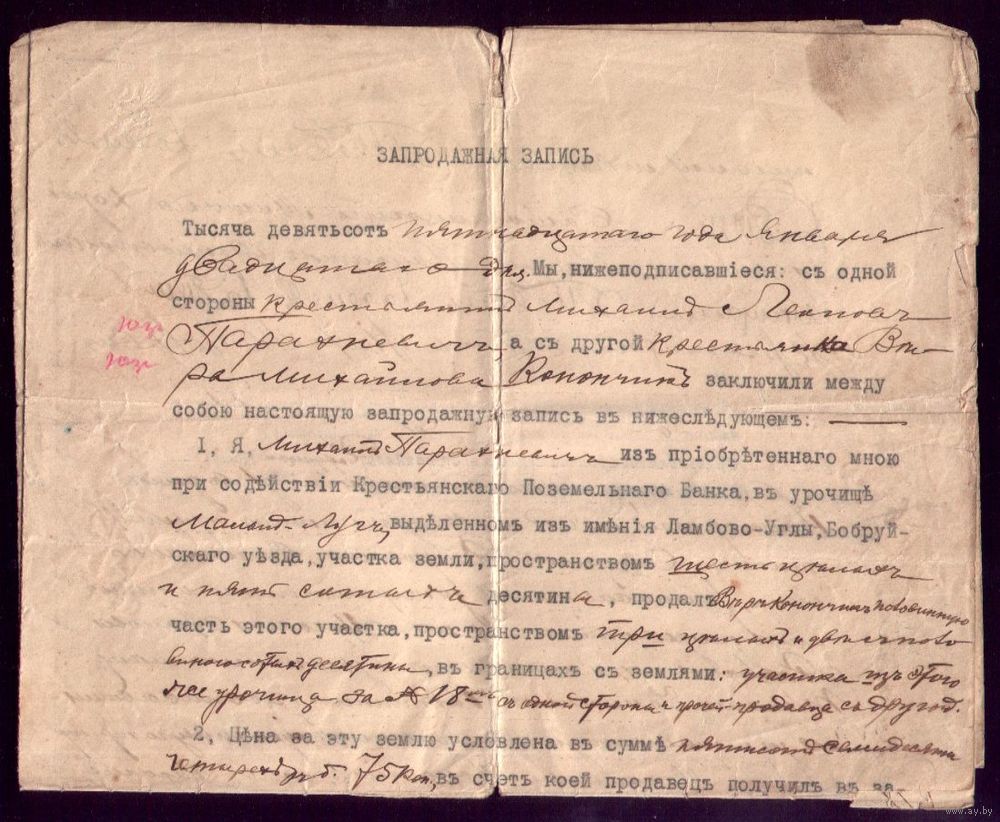 ЗАПРОДАЖНАЯ ЗАПИСЬ
Тысяча девятьсотъ пятнадцатаго года Января
двадцатаго дня, Мы, нижеподписавшіеся: съ одной
стороны крестьянинъ Михаилъ
Парахневичъ, а съ другой крестьянка Вѣ-
ра Михайлова Конончикъ заключили между
собою настоящую запродажную запись въ нижеслѣдующемъ:
I, Я, Михаилъ Парахневичъ изъ пріобрѣтеннаго мною
при содѣйствіи Крестьянскаго Поземельнаго Банка, въ урочищѣ
выдѣленномъ изъ имѣнія Ламбово-Углы, Бобруй-
скаго уѣзда, участка земли, пространствомъ шесть цѣлыхъ
и пять сотыхъ десятины, продалъ Вѣрѣ Конончикъ половинную
часть этого участка, пространствомъ три цѣлыхъ и двѣ съ поло
виною сотыхъ десятины, въ границахъ съ землями: участка изъ этого
же урочища за № 18 съ одной стороны и прочей продавца съ другой.
2, Цѣна за эту землю условлена въ суммѣ пятьсотъ семьдесятъ
четыре руб. 75 коп., въ счетъ коей продавецъ получилъ въ за-
www.ay.by